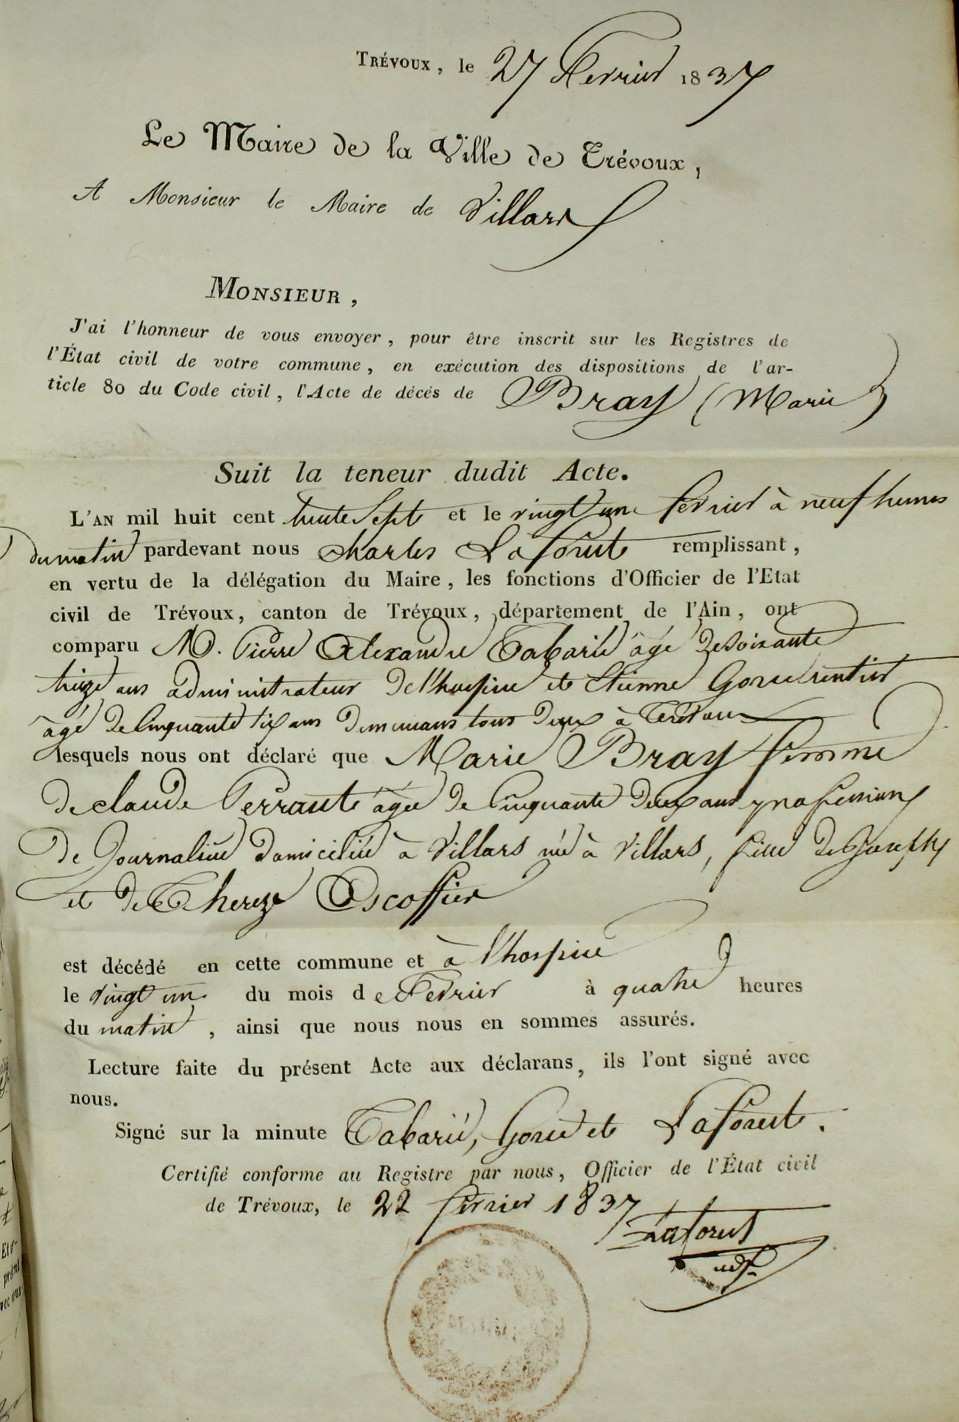 Trévoux, le 27 Fevrier 1837
Le Maire de la Ville de Trévoux,
A Monsieur le Maire de Villars
Monsieur,
J'ai l'honneur de vous envoyer, pour être inscrit sur les Registres de
l'État civil de votre commune, en exécution des dispositions de l'ar-
ticle 80 du Code civil, l'Acte de décés de Bray (Marie)
Suit la teneur dudit Acte.
L'an mil huit cent trente Sept et le vingt un fevrier à neuf heures
du matin pardevant nous Charles Laforest remplissant,
en vertu de la délégation du Maire, les fonctions d'Officier de l'Etat
civil de Trévoux, canton de Trévoux, département de l'Ain, ont
comparu M. Pierre Alexandre Tabarié âgé de Soixante
treize ans administrateur de l'hospice et Etienne Gorie rentier
âgé de Cinquante six ans demeurans tous deux à Trévoux
lesquels nous ont déclaré que Marie Bray femme
de claude Perraut âgée de Cinquante deux ans profession
de Journalière domiciliée à Villars née à Villars, fille de Joseph
et de Thereze Escoffier
est décédé en cette commune et à l'hospice
le vingt un du mois de Fevrier à quatre heures
du matin, ainsi que nous nous en sommes assurés.
Lecture faite du présent Acte aux déclarans, ils l'ont signé avec
nous.
Signé sur la minute Tabarié, Gorie et Laforest.
Certifié conforme au Registre par nous, Officier de l'État civil
de Trévoux, le 22 fevrier 1837
Laforest
adj.